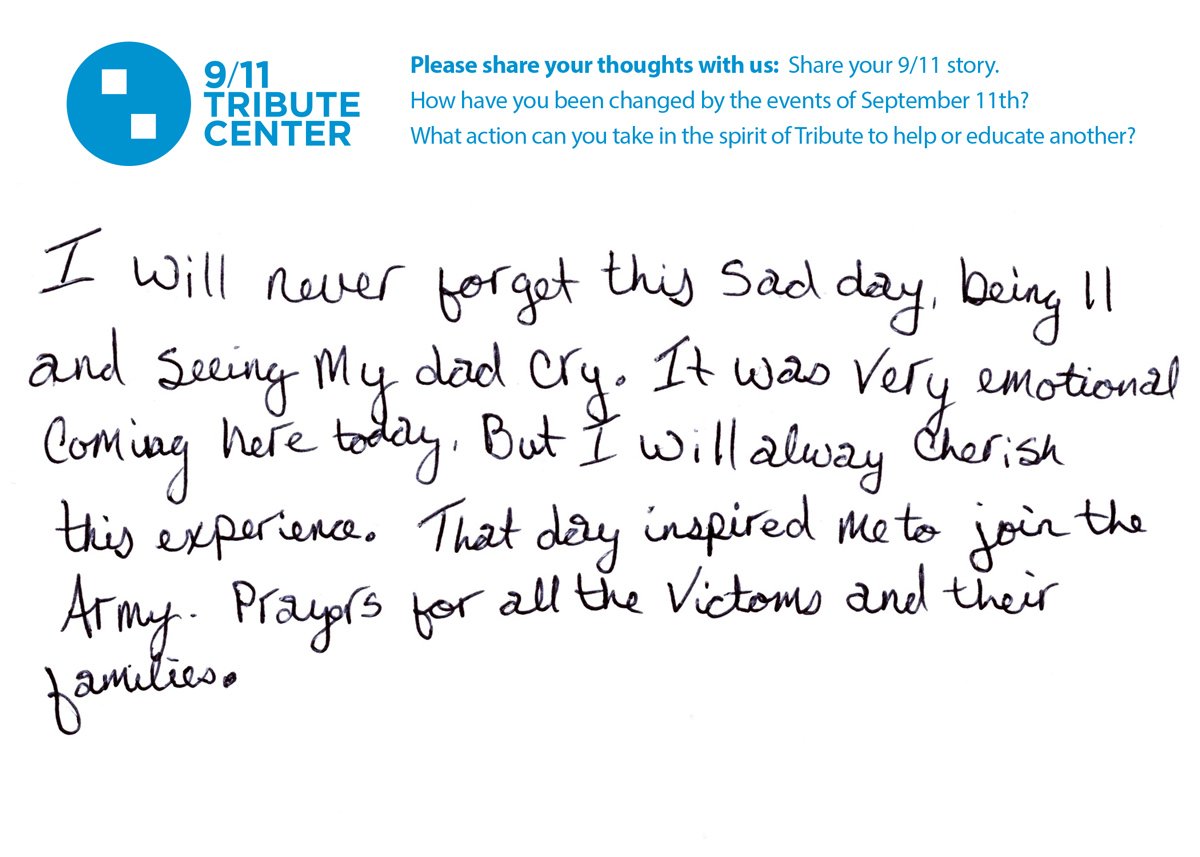 9/11
TRIBUTE
CENTER
Please share your thoughts with us: Share your 9/11 story.
How have you been changed by the events of September 11th?
What action can you take in the spirit of Tribute to help or educate another?
I will never forget this sad day, being 11
and seeing My dad cry. It was very emotional
Coming here today. But I will alway cherish
this experience. That day inspired me to join the
Army. Prayers for all the Victoms and their
families.